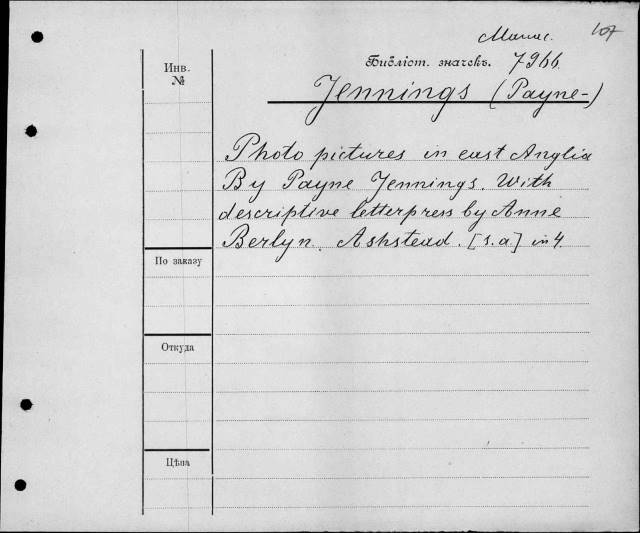 107
Библіст. значекъ. 7966.
Jennings (Payne-)
Инв.
№
Photo pictures in east Anglia
By Payne Jennings. With
descriptive letterpress by Anne
Berlyn. Ashstead. [s.a.] in 4.
По заказу
Откуда
Цѣна